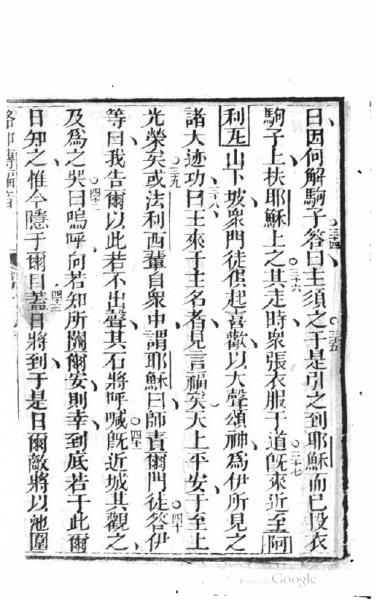 曰因何解駒子答曰主須之于是引之到耶穌而已投衣
駒子上扶耶穌上之其走時衆張衣服于道旣來近至阿
利瓦山下坡衆門徒俱起喜歡以大聲頌神爲伊所見之
諸大迹功曰王來于主名者見言福矣天上平安于至上
光榮矣或法利西輩自衆中謂耶穌曰師責爾門徒答伊
等曰我告爾以此若不出聲其石將呼喊旣近城其觀之
及爲之哭曰嗚呼向若知所關爾安則幸到底若于此爾
日知之惟今隱于爾目蓋日將到于是日爾敵將以池圍
三四
三五
三六
三七
三八
三九
四十
四一
四二
四三
Google